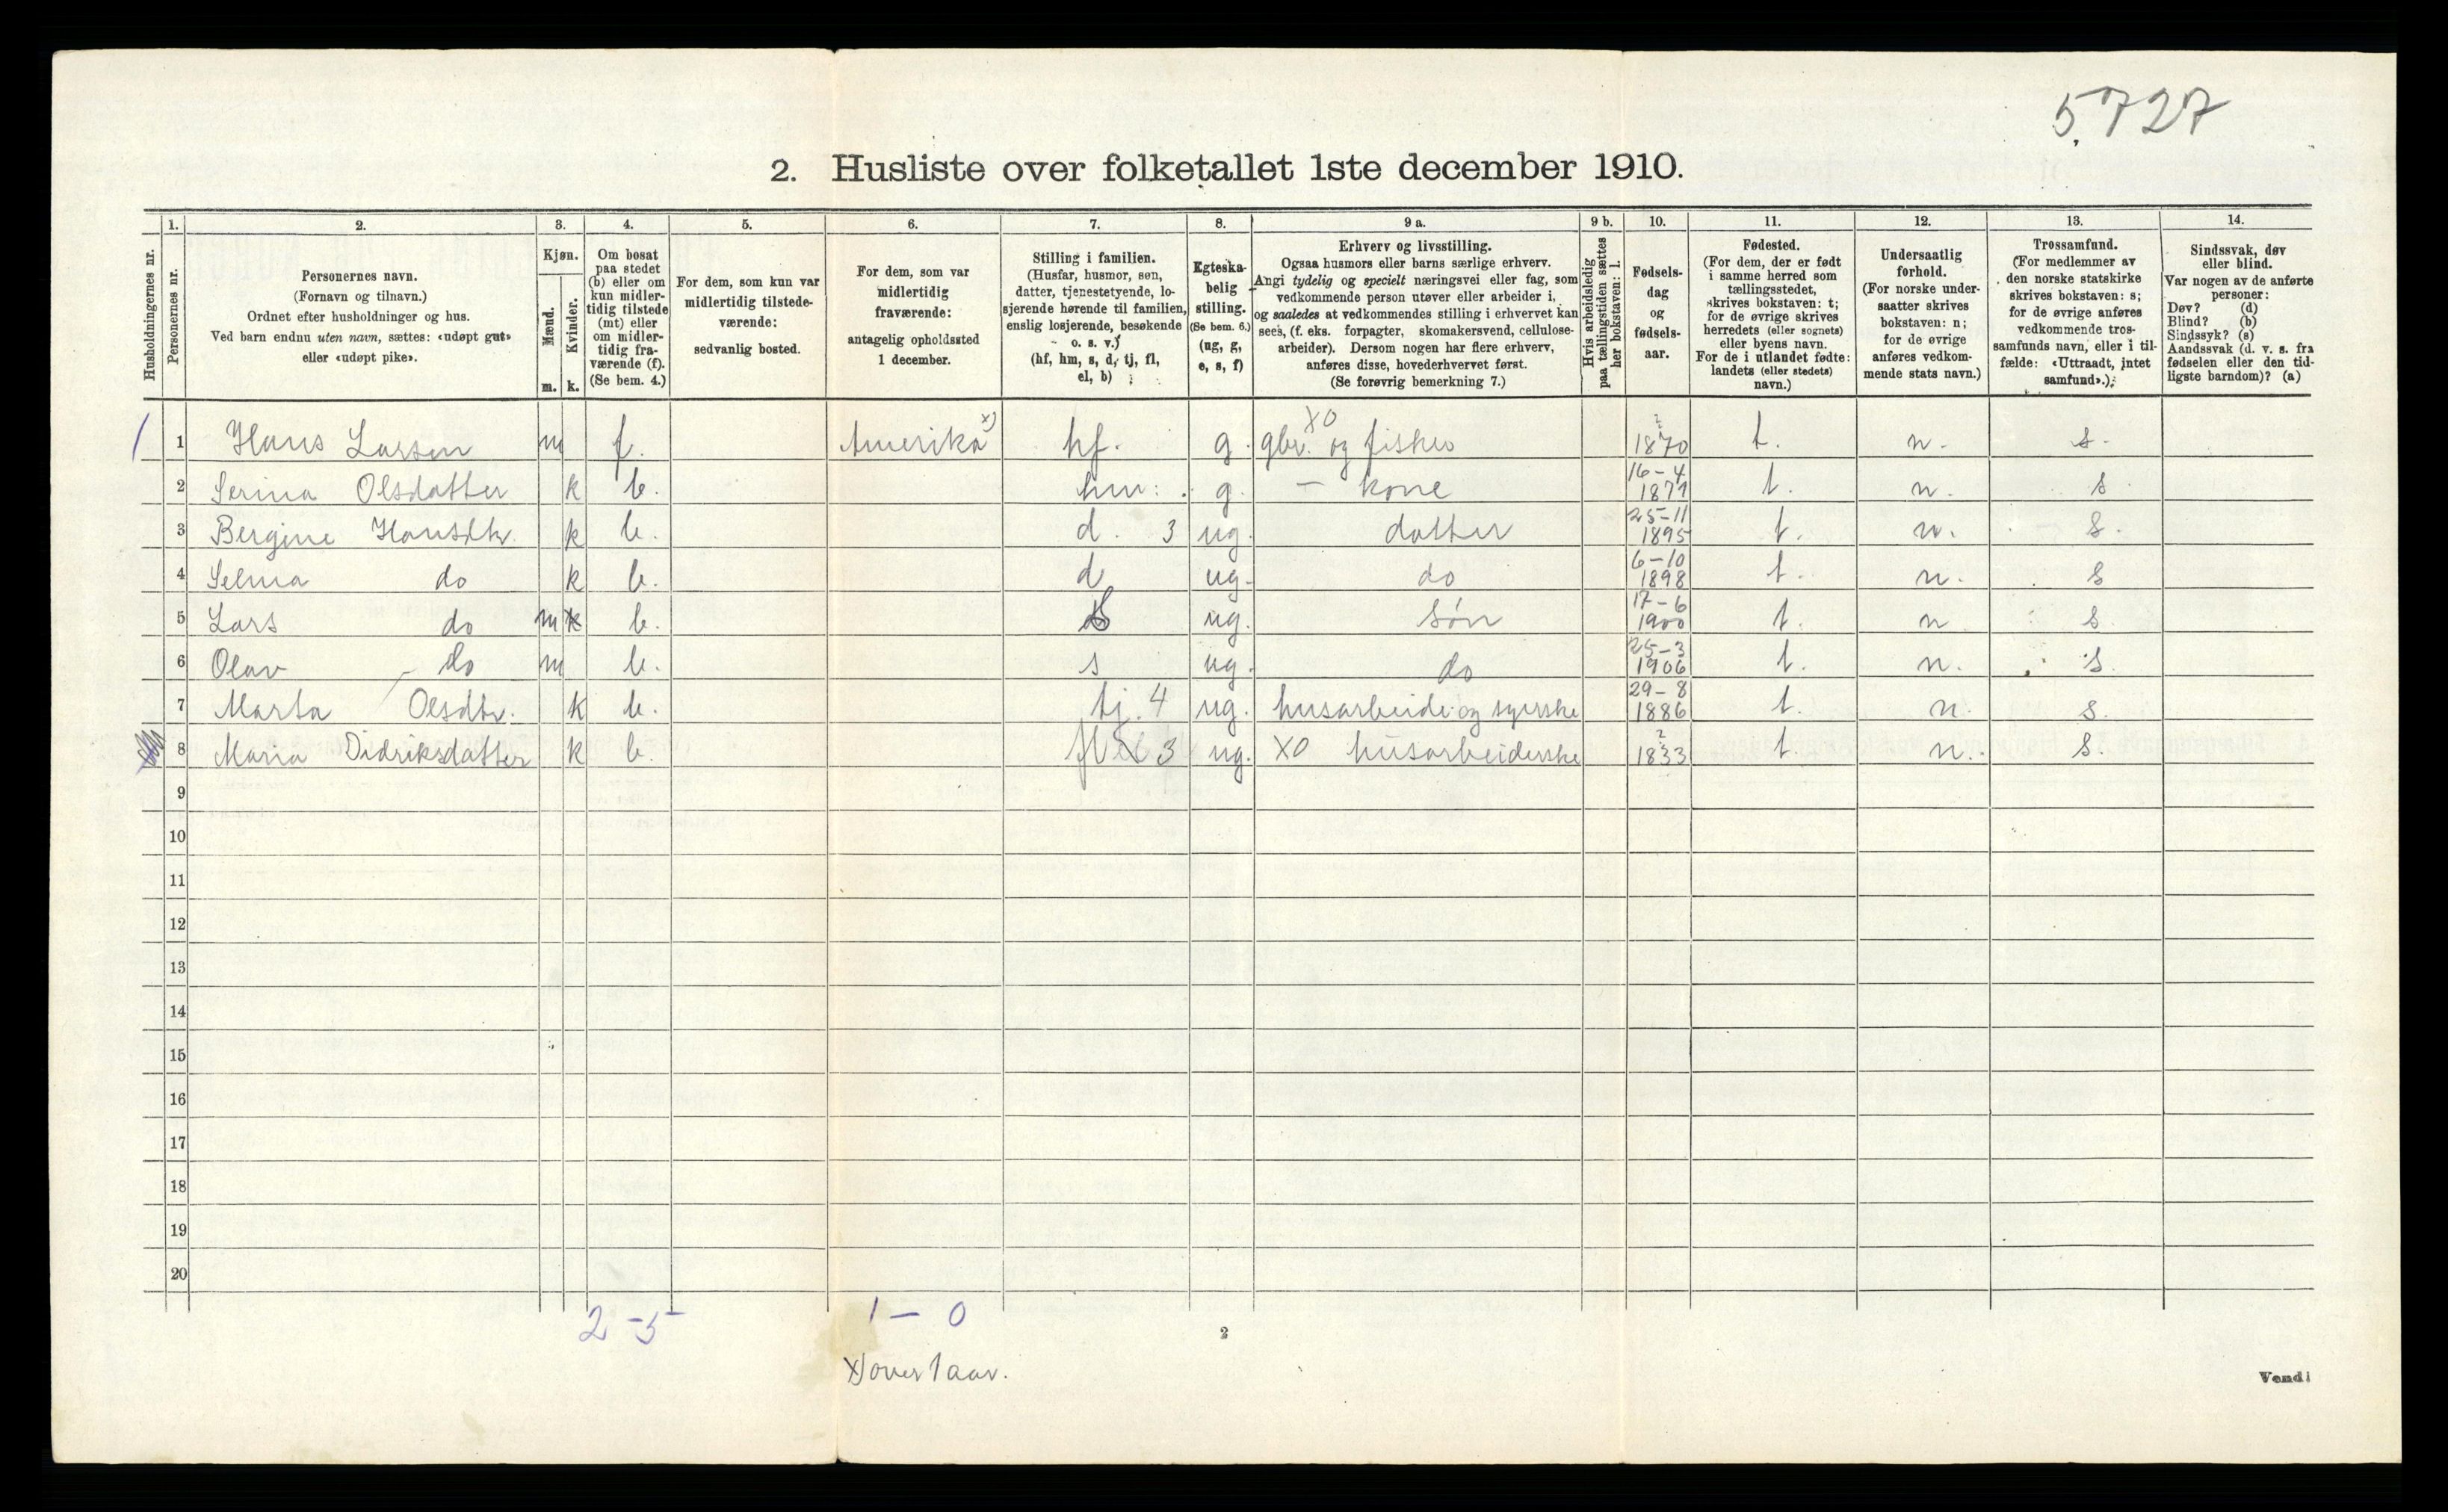 5727
2. Husliste over folketallet 1ste december 1910.
1. 2. 3. 4. 5. 6. 7. 8. 9 a. 9 b. 10. 11. 12. 13. 14.
Husholdningernes nr.
Personernes nr.
Personernes navn.
(Fornavn og tilnavn.)
Ordnet efter husholdninger og hus.
Ved barn endnu uten navn, sættes: «udøpt gut»
eller «udøpt pike».
Kjøn.
Mænd.
Kvinder.
m. k.
Om bosat
paa stedet
(b) eller om
kun midler-
tidig tilstede
(mt) eller
om midler-
tidig fra-
værende (f).
(Se bem. 4.)
For dem, som kun var
midlertidig tilstede-
værende:
sedvanlig bosted.
For dem, som var
midlertidig
fraværende:
antagelig opholdssted
1 december.
Stilling i familien.
(Husfar, husmor, søn,
datter, tjenestetyende, lo-
sjerende hørende til familien,
enslig losjerende, besøkende
o. s. v.)
(hf, hm, s, d, tj, fl,
el, b)
Egteska-
belig
stilling.
(Se bem. 6.)
(ug, g,
e, s, f)
Erhverv og livsstilling.
Ogsaa husmors eller barns særlige erhverv.
Angi tydelig og specielt næringsvei eller fag, som
vedkommende person utøver eller arbeider i,
og saaledes at vedkommendes stilling i erhvervet kan
sees, (f. eks. forpagter, skomakersvend, cellulose-
arbeider). Dersom nogen har flere erhverv,
anføres disse, hovederhvervet først.
(Se forøvrig bemerkning 7.)
Hvis arbeidsledig
paa tællingstiden sættes
her bokstaven: l.
Fødsels-
dag
og
fødsels-
aar.
Fødested.
(For dem, der er født
i samme herred som
tællingsstedet,
skrives bokstaven: t;
for de øvrige skrives
herredets (eller sognets)
eller byens navn.
For de i utlandet fødte:
landets (eller stedets)
navn.)
Undersaatlig
forhold.
(For norske under-
saatter skrives
bokstaven: n;
for de øvrige
anføres vedkom-
mende stats navn.)
Trossamfund.
(For medlemmer av
den norske statskirke
skrives bokstaven: s;
for de øvrige anføres
vedkommende tros-
samfunds navn, eller i til-
fælde: «Uttraadt, intet
samfund».)
Sindssvak, døv
eller blind.
Var nogen av de anførte
personer:
Døv? (d)
Blind? (b)
Sindssyk? (s)
Aandssvak (d. v. s. fra
fødselen eller den tid-
ligste barndom)? (a)
1 1 Hans Larsen m f. Amerika x) hf. g. gbr. XO og fisker ? 1870 t. n. s.
2 Serina Olsdatter k b. hm. g. - kone 16-4 1871 t. n. s
3 Bergine Hansdtr. k b. d. 3 ug. datter 25-11 1895 t. n. s.
4 Selma do k b. d ug. do 6-10 1898 t. n. s
5 Lars do m k b. s ug. søn 17-6 1900 t. n s.
6 Olav do m b. s ug. do 25-3 1906 t. n. s.
7 Marta Olsdtr. k b. tj. 4 ug. husarbeide og syerske 29-8 1886 t. n. s.
8 Maria Didriksdatter k b. 3 ug. XO husarbeiderske ? 1833 t n. s
9
10
11
12
13
14
15
16
17
18
19
20
2-5 1-0
2
x) over 1 aar.
Vend!